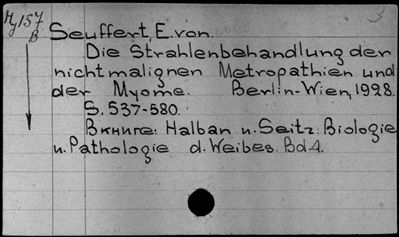 Му157
В
3
Seuffert, E. von.
Die Strahlenbehandlung der
nichtmalignen Metropathien und
der Myome. Berlin-Wien, 1928.
S. 537-580.
Вкниге: Halban u. Seitz: Biologie
u. Pathologie d. Weibes. Bd. 4.